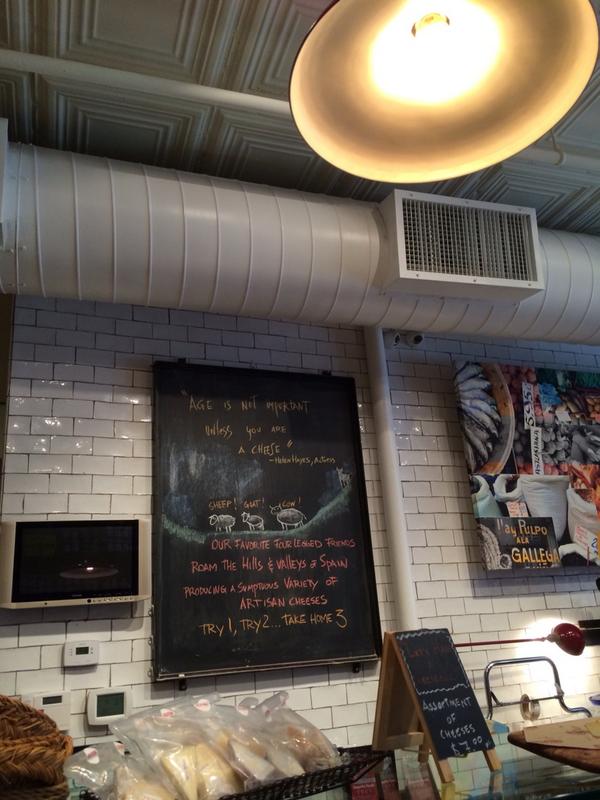 "AGE IS NOT IMPORTANT
UNLESS YOU ARE
A CHEESE"
-Helen Hayes, Actress
SHEEP! GOAT! COW!
OUR FAVORITE FOUR LEGGED FRIENDS
ROAM THE HILLS & VALLEYS OF SPAIN
PRODUCING A SUMPTUOUS VARIETY OF
ARTISAN CHEESES
TRY 1, TRY 2... TAKE HOME 3
ASSORTMENT
OF
CHEESES
Hay Pulpo
ALA
GALLEGA